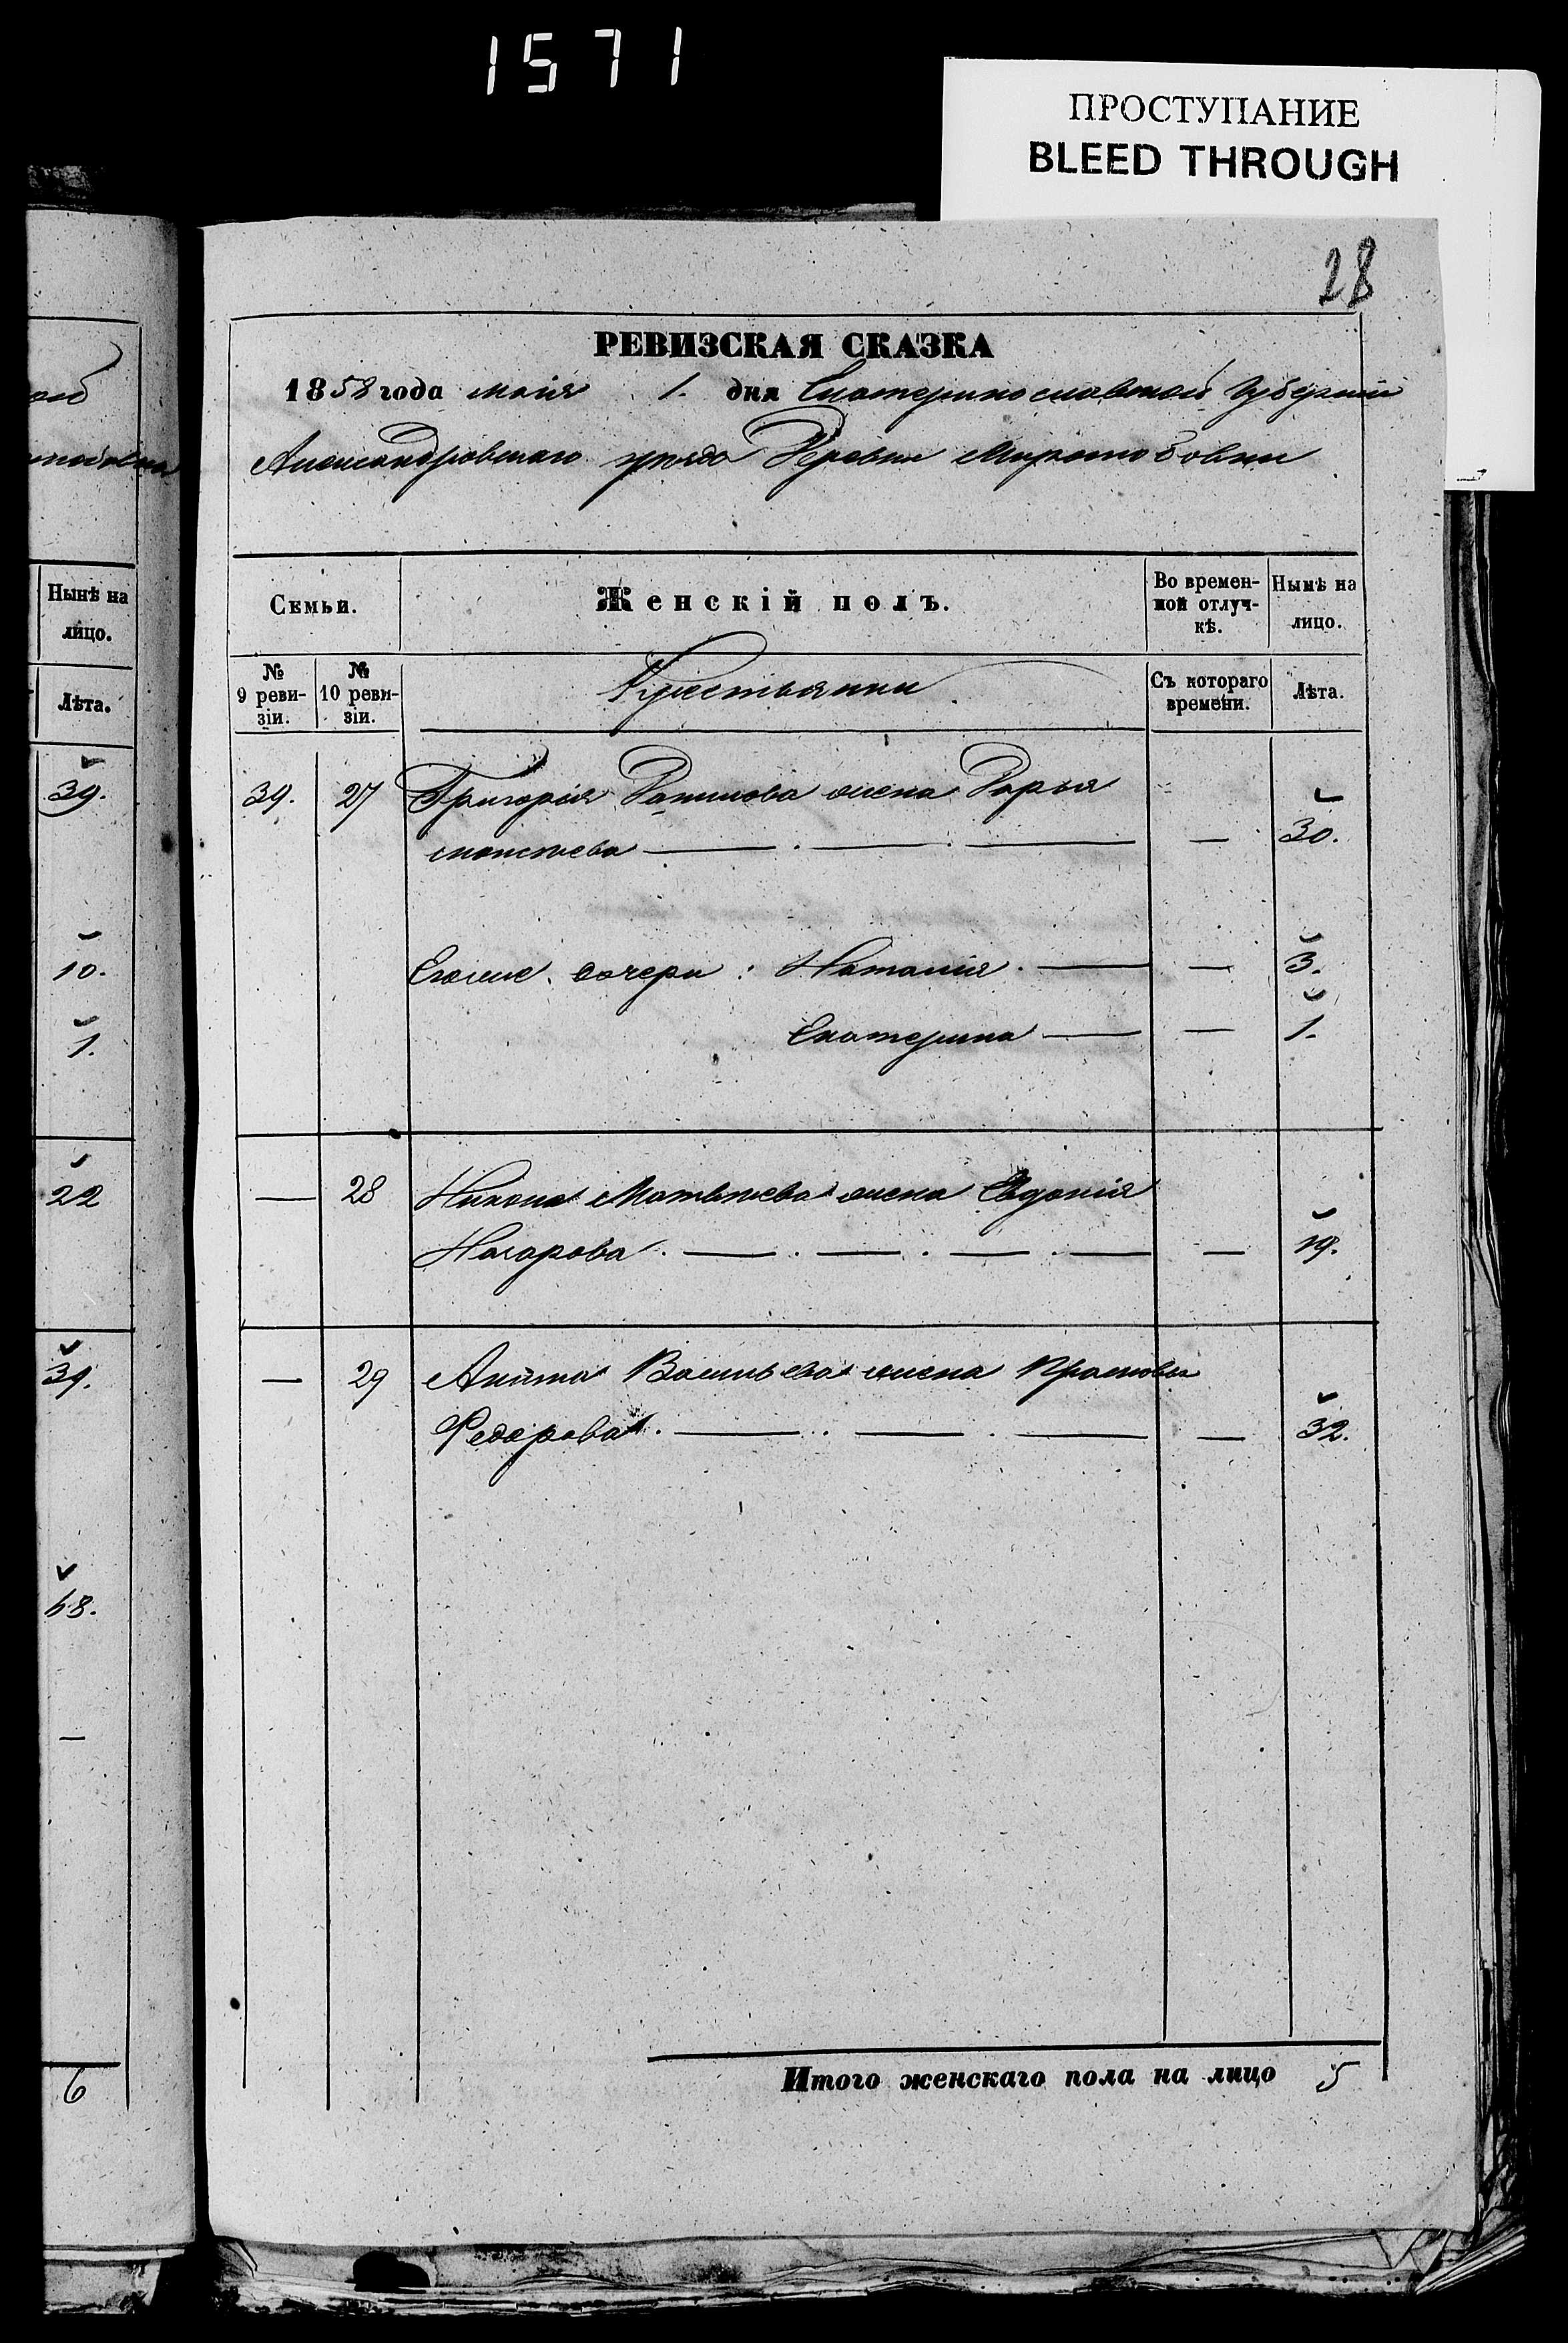 1571
ПРОСТУПАНИЕ
BLEED THROUGH
28
РЕВИЗСКАЯ СКАЗКА
1858 года маія 1. дня Екатеринославской Губерніи
Александровскаго уѣзда Деревни
Нынѣ на
лицо.
Лѣта.
39.
10.
1.
22
39.
68.
—
6
Семьи.
Женскій полъ.
Во времен-
ной отлуч-
кѣ.
Нынѣ на
лицо.
№
9 реви-
зіи.
№
10 реви-
зіи.
Крестьянки
Съ котораго
времени.
Лѣта.
39. 27 Григорія Данилова жена Дарья
— 30.
Егоже дочери: Наталія — — 3.
Екатерина — — 1.
— 28 Никона Матвѣева жена Евдокія
Назарова — — 19.
— 29 Васильева жена Прасковья
Федорова — — 32.
Итого женскаго пола на лицо 5